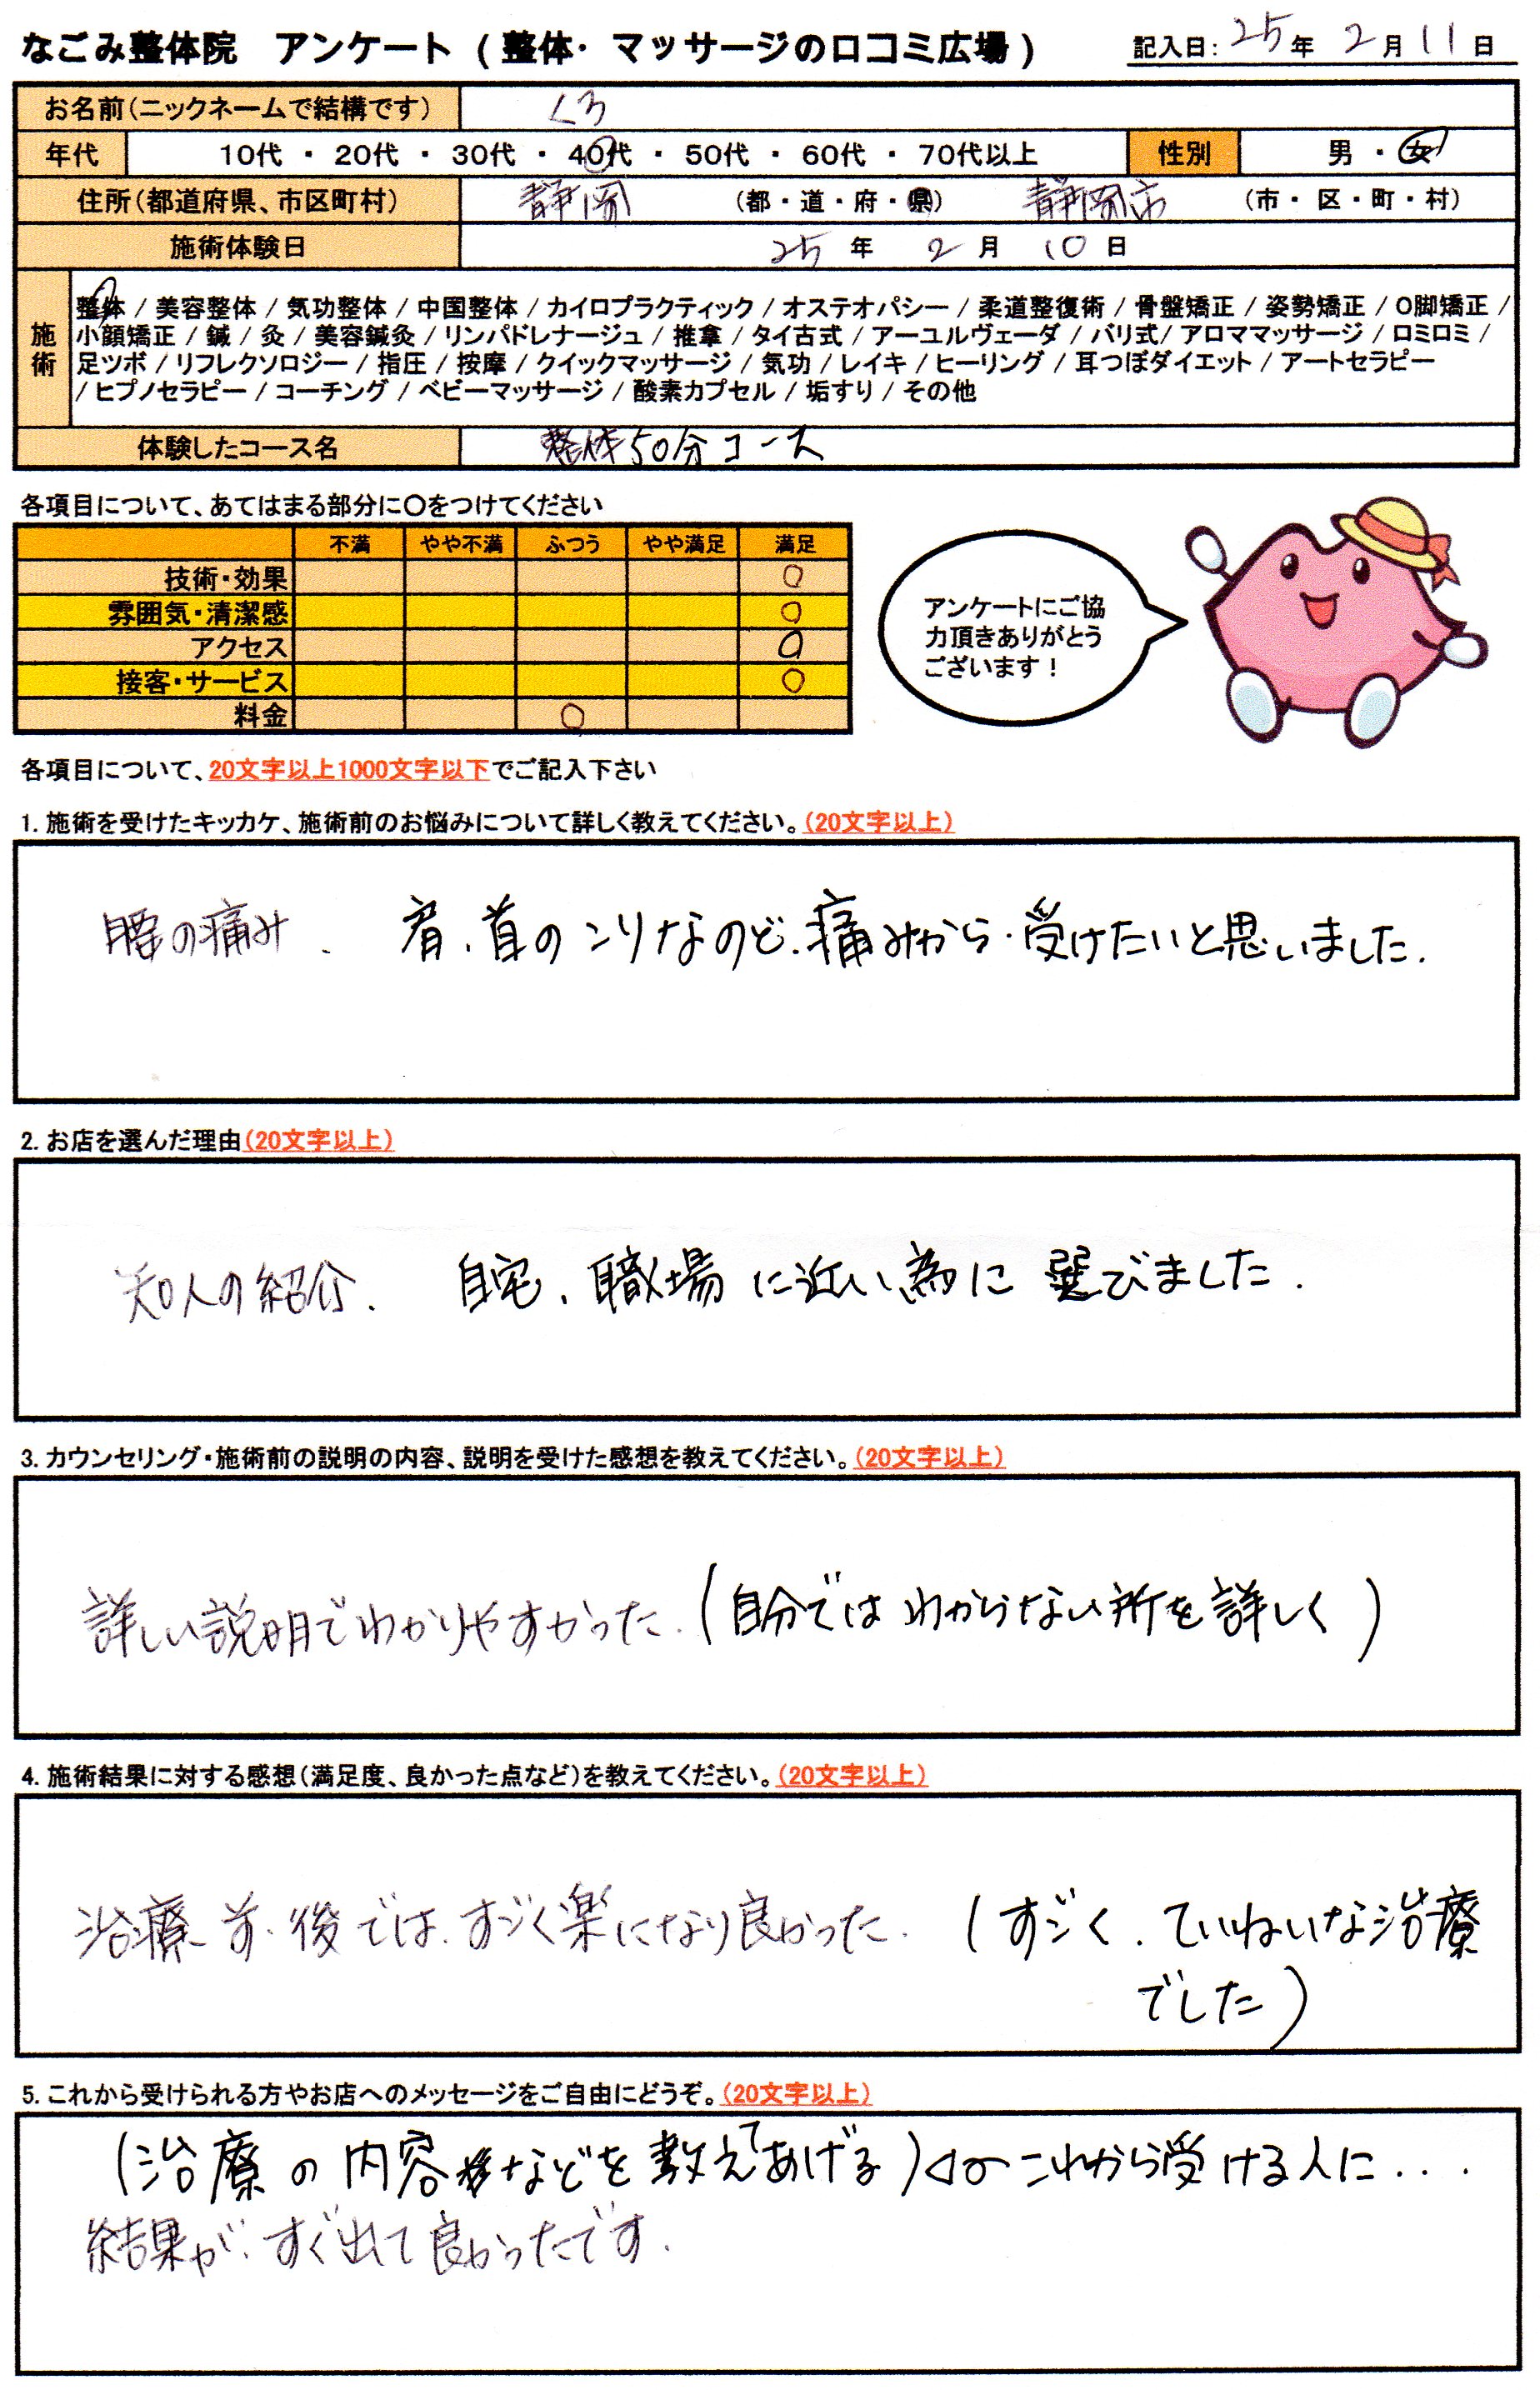 なごみ整体院 アンケート ( 整体・マッサージの口コミ広場 ) 記入日: 25 年 2 月 11 日
お名前(ニックネームで結構です) くろ
年代 10代 ・ 20代 ・ 30代 ・ 40代 ・ 50代 ・ 60代 ・ 70代以上 性別 男 ・ 女
住所(都道府県、市区町村) 静岡 (都・道・府・県) 静岡市 (市・区・町・村)
施術体験日 25 年 2 月 10 日
施術
整体 / 美容整体 / 気功整体 / 中国整体 / カイロプラクティック / オステオパシー / 柔道整復術 / 骨盤矯正 / 姿勢矯正 / O脚矯正 /
小顔矯正 / 鍼 / 灸 / 美容鍼灸 / リンパドレナージュ / 推拿 / タイ古式 / アーユルヴェーダ / バリ式/ アロママッサージ / ロミロミ /
足ツボ / リフレクソロジー / 指圧 / 按摩 / クイックマッサージ / 気功 / レイキ / ヒーリング / 耳つぼダイエット / アートセラピー
/ ヒプノセラピー / コーチング / ベビーマッサージ / 酸素カプセル / 垢すり / その他
体験したコース名 整体50分コース
各項目について、あてはまる部分に○をつけてください
不満 やや不満 ふつう やや満足 満足
技術・効果 ○
雰囲気・清潔感 ○
アクセス ○
接客・サービス ○
料金 ○
アンケートにご協
力頂きありがとう
ございます!
各項目について、20文字以上1000文字以下でご記入下さい
1. 施術を受けたキッカケ、施術前のお悩みについて詳しく教えてください。(20文字以上)
腰の痛み、肩、首のこりなのど、痛みから、受けたいと思いました.
2. お店を選んだ理由(20文字以上)
知人の紹介、自宅、職場に近い為に選びました.
3. カウンセリング・施術前の説明の内容、説明を受けた感想を教えてください。(20文字以上)
詳しい説明でわかりやすかった.(自分ではわからない所を詳しく)
4. 施術結果に対する感想(満足度、良かった点など)を教えてください。(20文字以上)
治療前.後では.すごく楽になり良かった.(すごく.ていねいな治療
でした)
5. これから受けられる方やお店へのメッセージをご自由にどうぞ。(20文字以上)
(治療の内容などを教えてあげる) これから受ける人に...
結果が.すぐ出て良かったです.